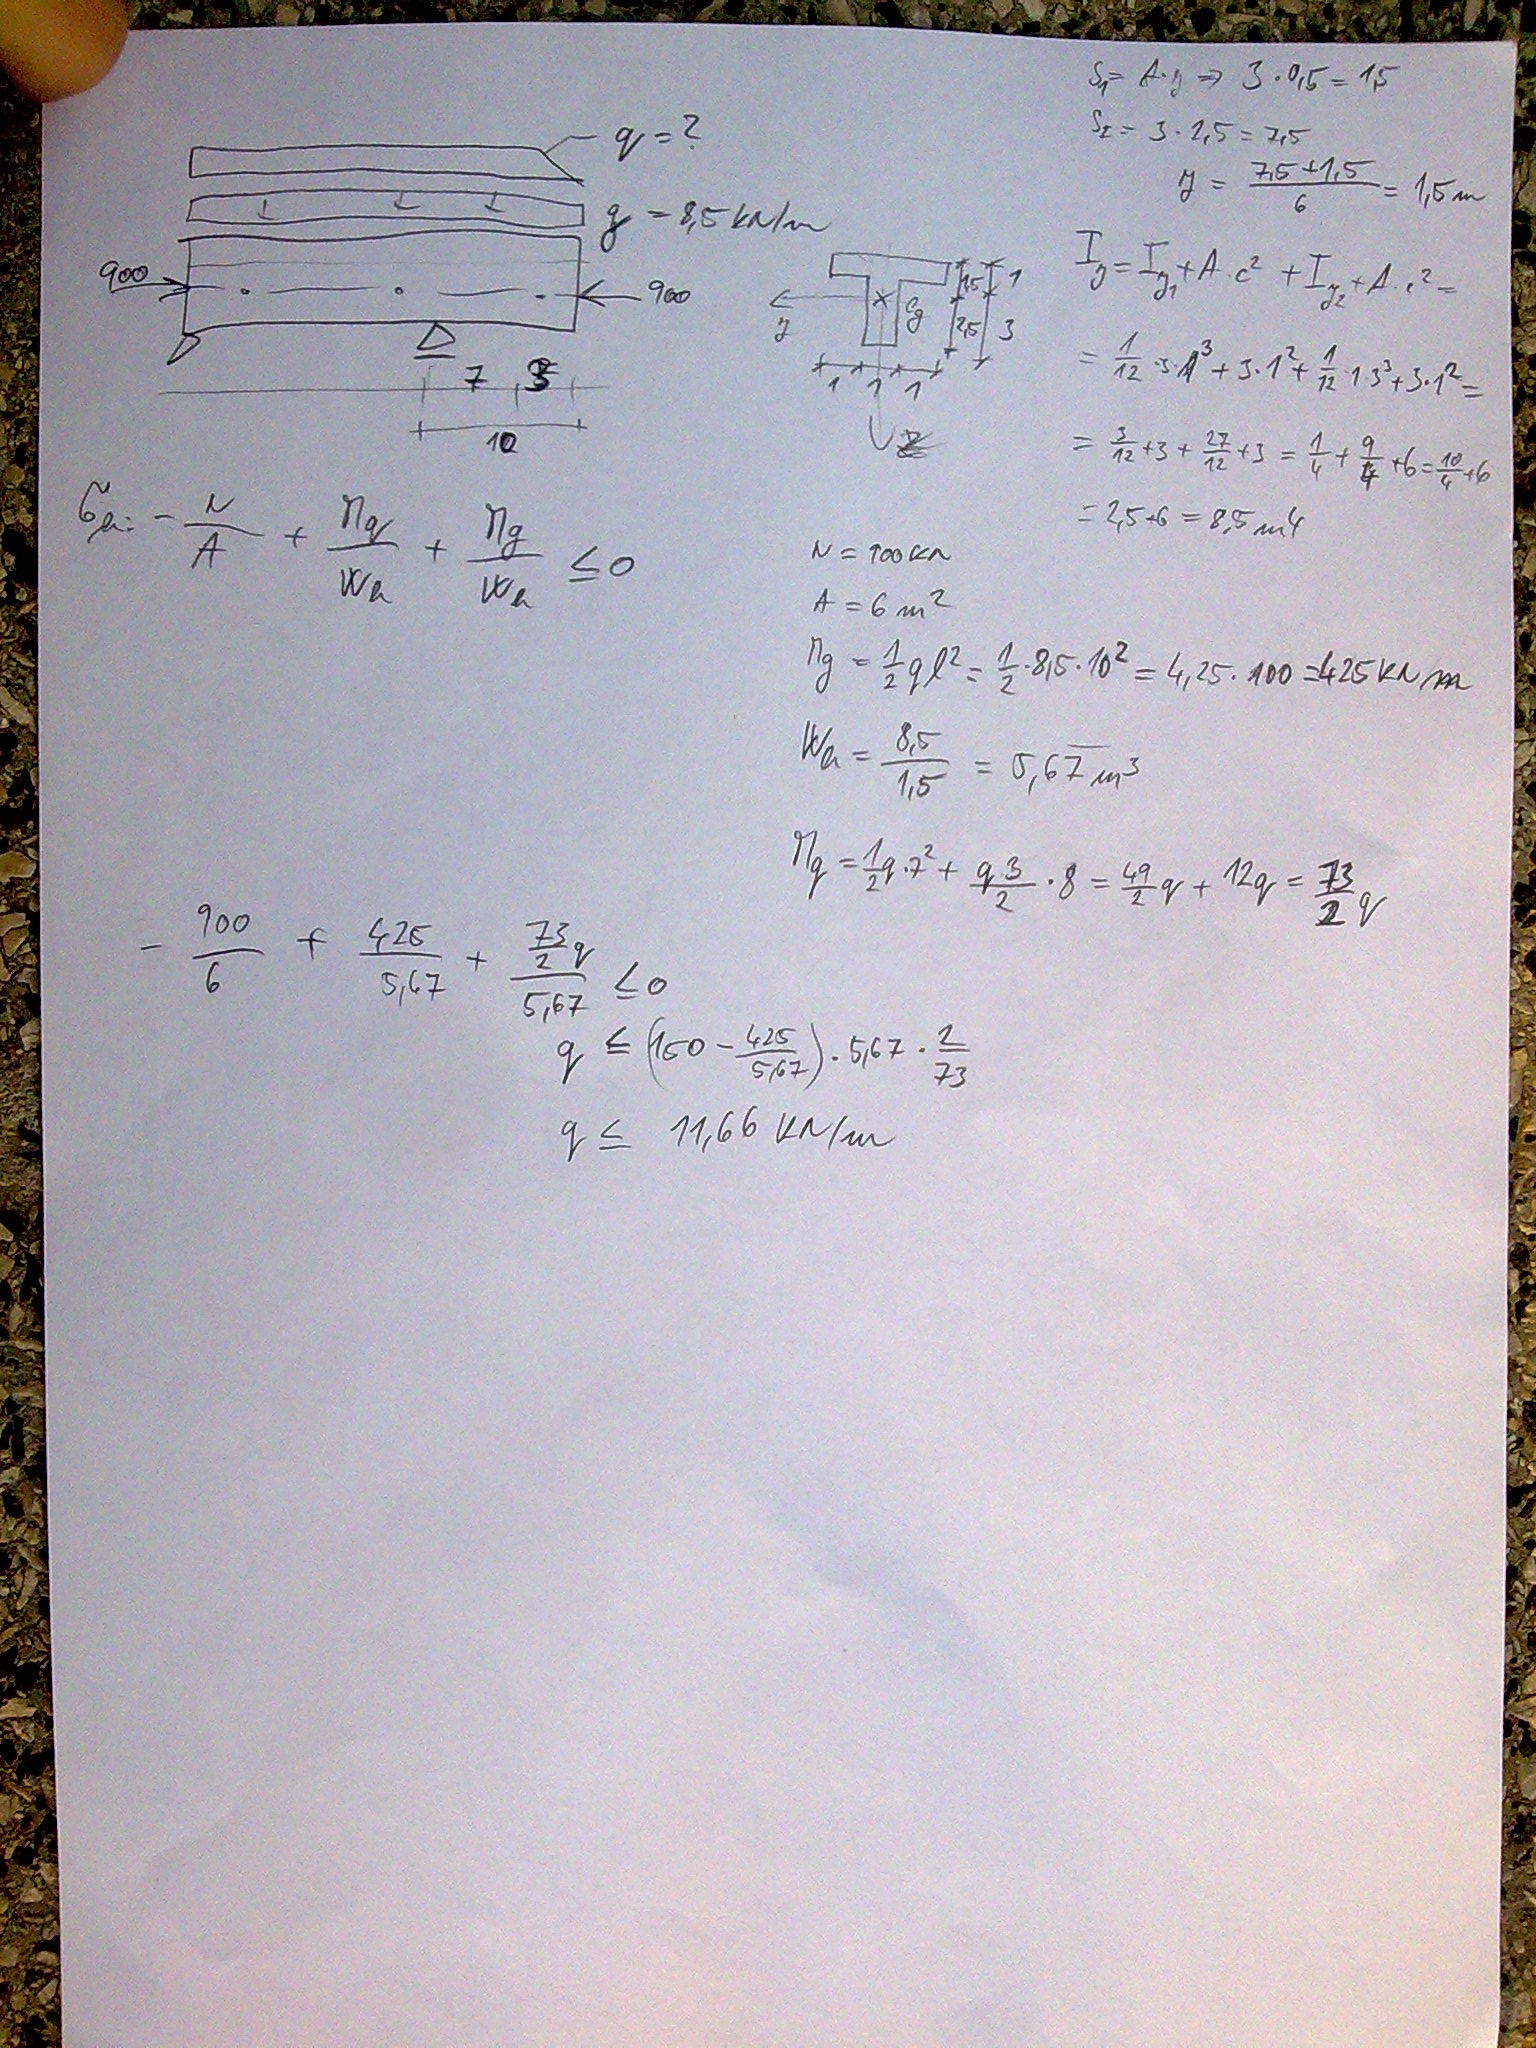 q = ?
g = 8,5 kN/m
900
900
7 3
10
y
Sg
1,5 1
2,5 3
1 1 1
S₁ = A·y => 3·0,5 = 1,5
S₂ = 3·2,5 = 7,5
y = (7,5+1,5)/6 = 1,5 m
Iy = Iy₁ + A·c² + Iy₂ + A·c² =
= 1/12·3·1³ + 3·1² + 1/12·1·3³ + 3·1² =
= 3/12 + 3 + 27/12 + 3 = 1/4 + 9/4 + 6 = 10/4 + 6
= 2,5+6 = 8,5 m4
σh: - N/A + Mq/Wh + Mg/Wh ≤ 0
N = 900 kN
A = 6 m²
Mg = 1/2 q l² = 1/2·8,5·10² = 4,25·100 = 425 kNm
Wh = 8,5/1,5 = 5,67 m³
Mq = 1/2 q·7² + q·3/2·8 = 49/2 q + 12q = 73/2 q
- 900/6 + 425/5,67 + (73/2 q)/5,67 ≤ 0
q ≤ (150 - 425/5,67)·5,67·2/73
q ≤ 11,66 kN/m